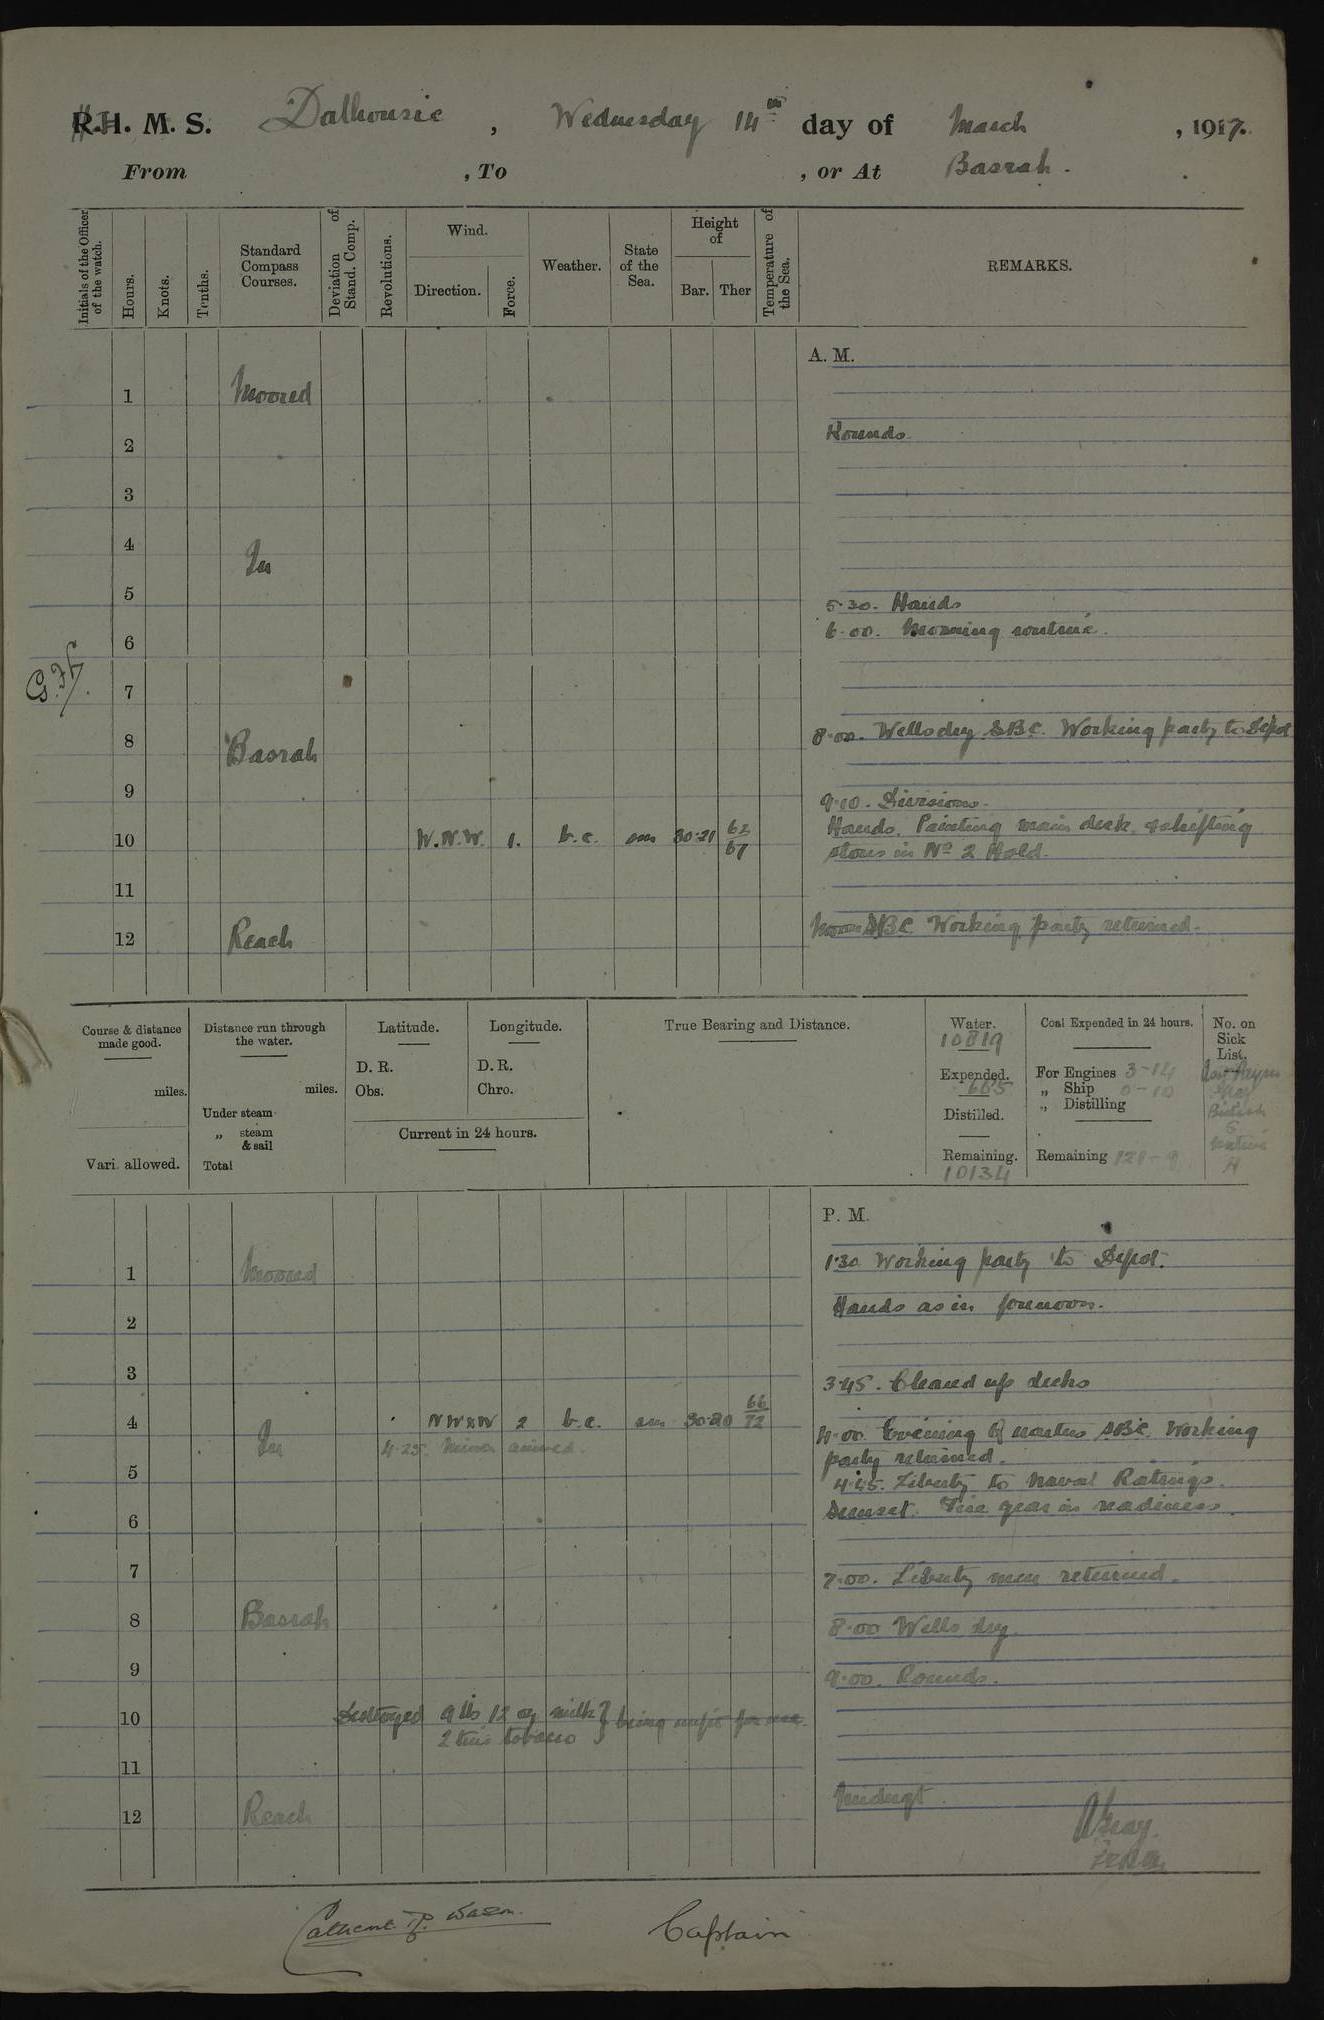 R.H. M. S. Dalhousie, Wednesday 14th day of March, 1917.
From , To , or At Basrah.
Initials of the Officer of the watch.
Hours.
Knots.
Tenths.
Standard Compass Courses.
Deviation of Stand. Comp.
Revolutions.
Wind.
Direction.
Force.
Weather.
State of the Sea.
Height of
Bar.
Ther
Temperature of the Sea.
REMARKS.
A. M.
1 Moored
Rounds
2
3
4
In
5
5.30. Hands
6.00. Morning routine.
6
7
8.00. Wells dry SBC. Working party to Depot
8 Basrah
9
9.10. Divisions.
Hands. Painting main deck & shifting
10 W.N.W. 1. b.c. sm 30.21 62 67
stores in No 2 Hold.
11
Noon SBC Working party returned.
12 Reach
Course & distance made good.
miles.
Vari. allowed.
Distance run through the water.
miles.
Under steam
„ steam & sail
Total
Latitude.
D. R.
Obs.
Longitude.
D. R.
Chro.
Current in 24 hours.
True Bearing and Distance.
Water.
10819
Expended.
Distilled.
Remaining.
10134
Coal Expended in 24 hours.
For Engines 3-14
„ Ship 0-10
„ Distilling
Remaining 121-9
No. on Sick List.
British
5
Native
P. M.
1.30 Working party to Depot.
1 Moored
Hands as in forenoon.
2
3
3.45. Cleaned up decks
4 NWxW 2 b.c. sm 30.20 66 72
4.00. Evening Quarters SBC. Working
In 4.25. arrived.
party returned.
5
4.45. Liberty to Naval Ratings.
Sunset. Fire gear in readiness.
6
7
7.00. Liberty men returned.
8 Basrah
8.00 Wells dry.
9
9.00. Rounds.
10
Destroyed 9 lbs 12 oz milk } being unfit for use.
2 tins tobacco
11
Midngt.
12 Reach
Captain